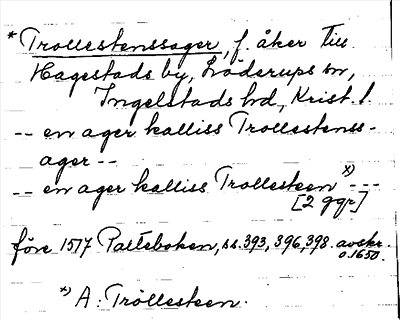 * Trollestenssager, f. åker till
Hagestads by, Löderups sn,
Ingelstads hd, Krist. l.
-- en ager kalliss Trollestenss-
ager --
-- en ager kalliss Trollesteen x) ---
[2 ggr]
före 1517 Palteboken, ss. 393, 396, 398. avskr.
o. 1650.
x) A: Tröllesteen.